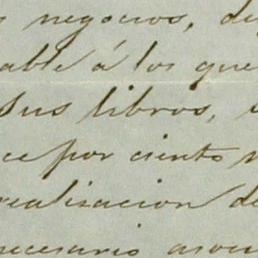 s negocios, de
able á los que
sus libros,
ce por ciento
realisacion de
necesario